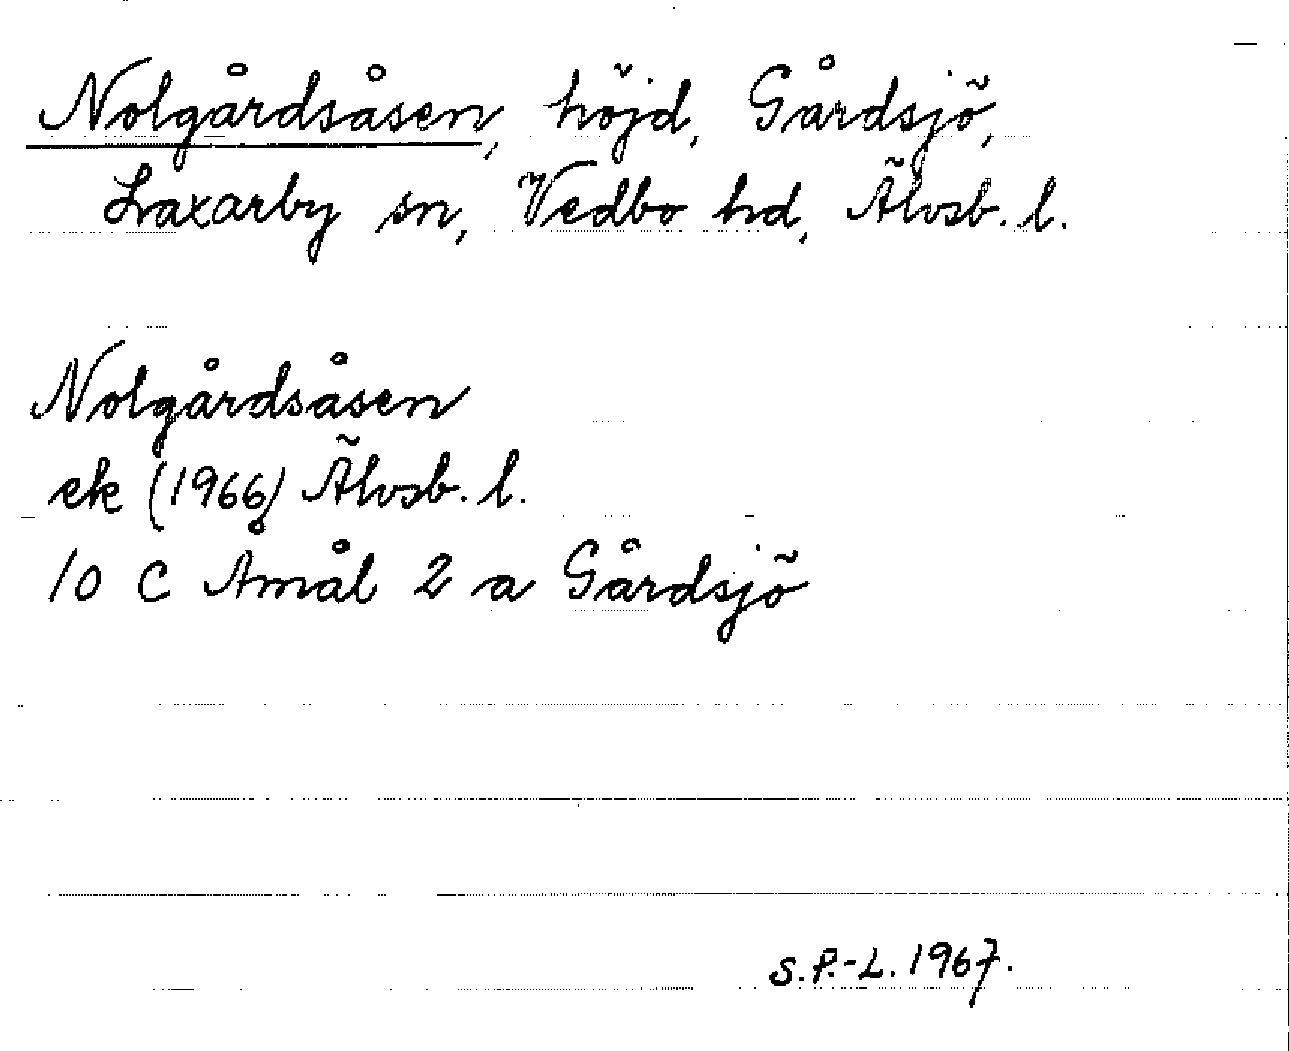 Nolgårdsåsen, höjd, Gårdsjö,
Laxarby sn, Vedbo hd, Älvsb. l.
Nolgårdsåsen
ek (1966) Älvsb. l.
10 C Åmål 2 a Gårdsjö
S.P.-L. 1967.